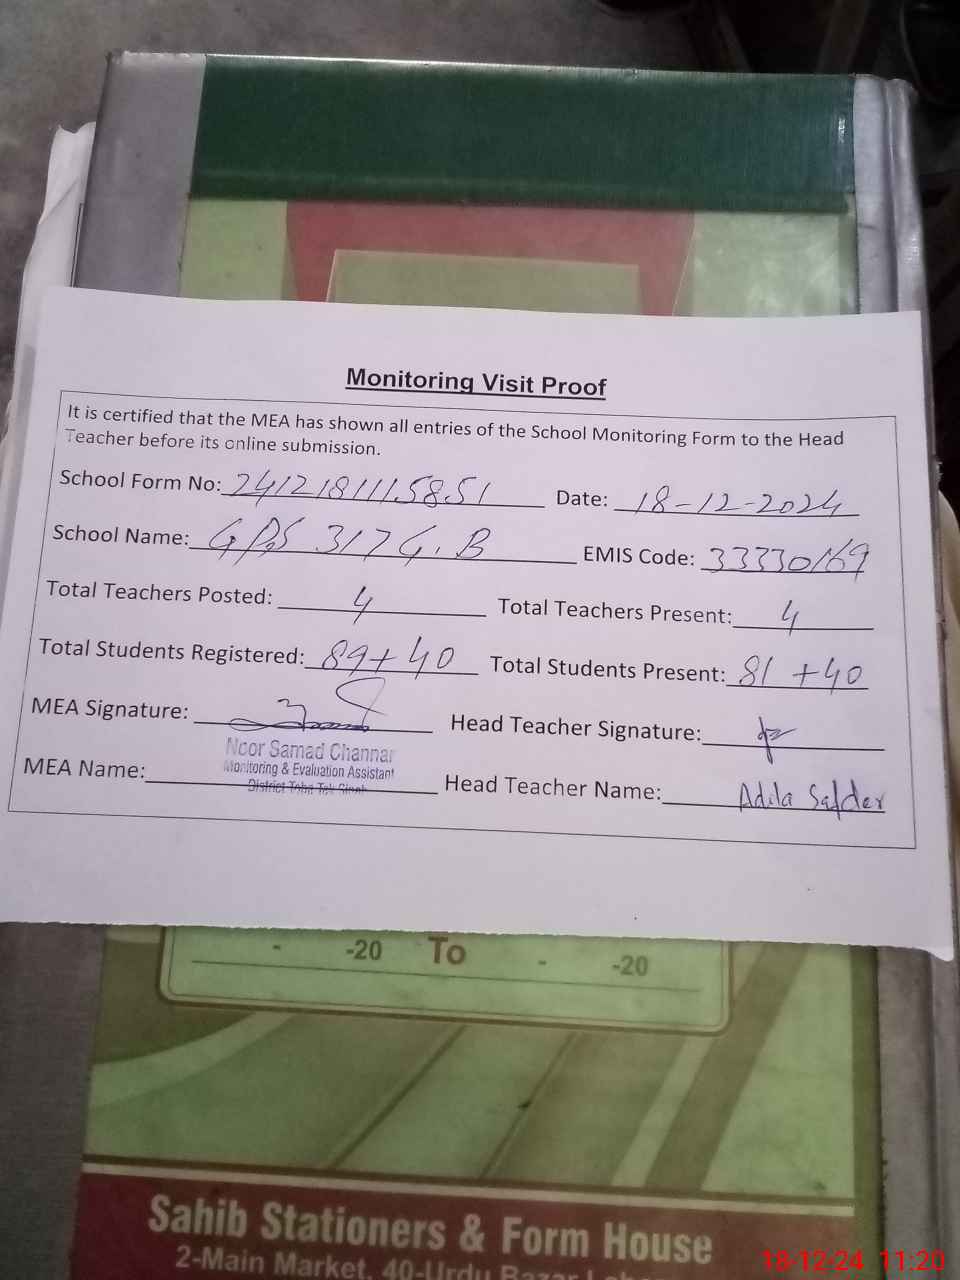 Monitoring Visit Proof
It is certified that the MEA has shown all entries of the School Monitoring Form to the Head
Teacher before its online submission.
School Form No: 241218111.58.51 Date: 18-12-2024
School Name: GPS 317 G.B EMIS Code: 33330169
Total Teachers Posted: 4 Total Teachers Present: 4
Total Students Registered: 89+40 Total Students Present: 81+40
MEA Signature: Head Teacher Signature:
Noor Samad Channar
Monitoring & Evaluation Assistant
District Toba Tek Singh
MEA Name: Head Teacher Name: Adila Safder
- -20 To - -20
Sahib Stationers & Form House
2-Main Market, 40-Urdu Bazar
18-12-24 11:20